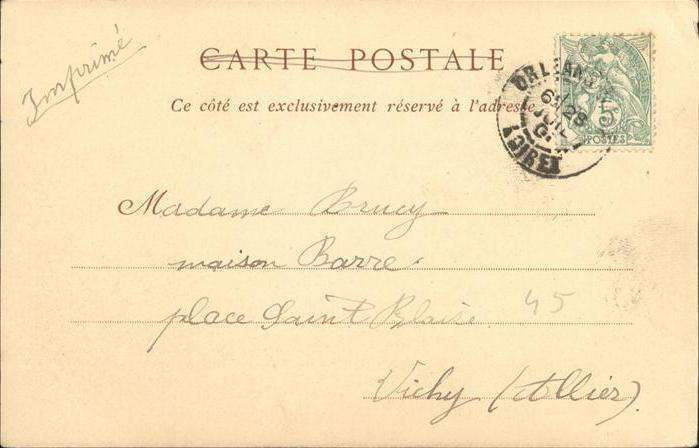 Imprimé
CARTE POSTALE
Ce côté est exclusivement réservé à l'adresse
ORLEANS
6
28
JUIL
LOIRET
5
POSTES
Madame Brucy
maison Barre
place Saint Blaise 45
Vichy (Allier).